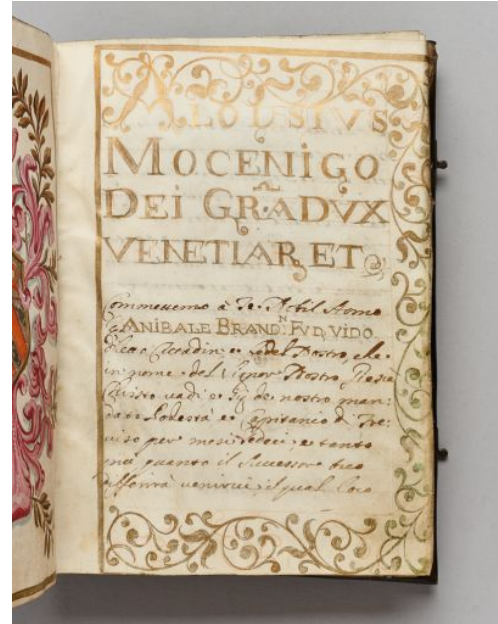 ALOUSIUS
MOCENIGO
DEI GRA DVX
VENETIAR ET
Commettemo à Te Nobil Homo
ANIBALE BRAND.N FV D. VIDO
diletto Cittadin e fedel Nostro, che
in nome del Signor Nostro Giesù
Christo vadi e sij de nostro man:
dato Podestà e Capitanio di Tre:
viso per mesi sedeci, e tanto
più quanto il Successore tuo
differirà venirvi, il qual loco